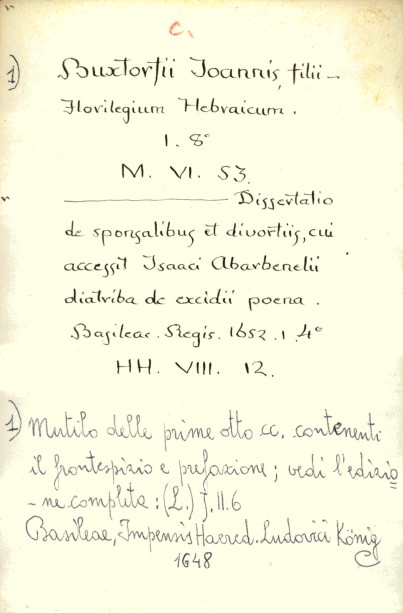 C.
1) Buxtorfii Joannis, filii -
Florilegium Hebraicum.
1. 8°
M. VI. 53.
——— Dissertatio
de sponsalibus et divortiis, cui
accessit Isaaci Abarbenelii
diatriba de excidii poena.
Basileae. Regis. 1652. 1. 4°
HH. VIII. 12.
1) Mutilo delle prime otto cc. contenenti
il frontespizio e prefazione; vedi l'edizio
-ne completa: (L.) J. II. 6
Basileae, Impensis Haered. Ludovici König
1648